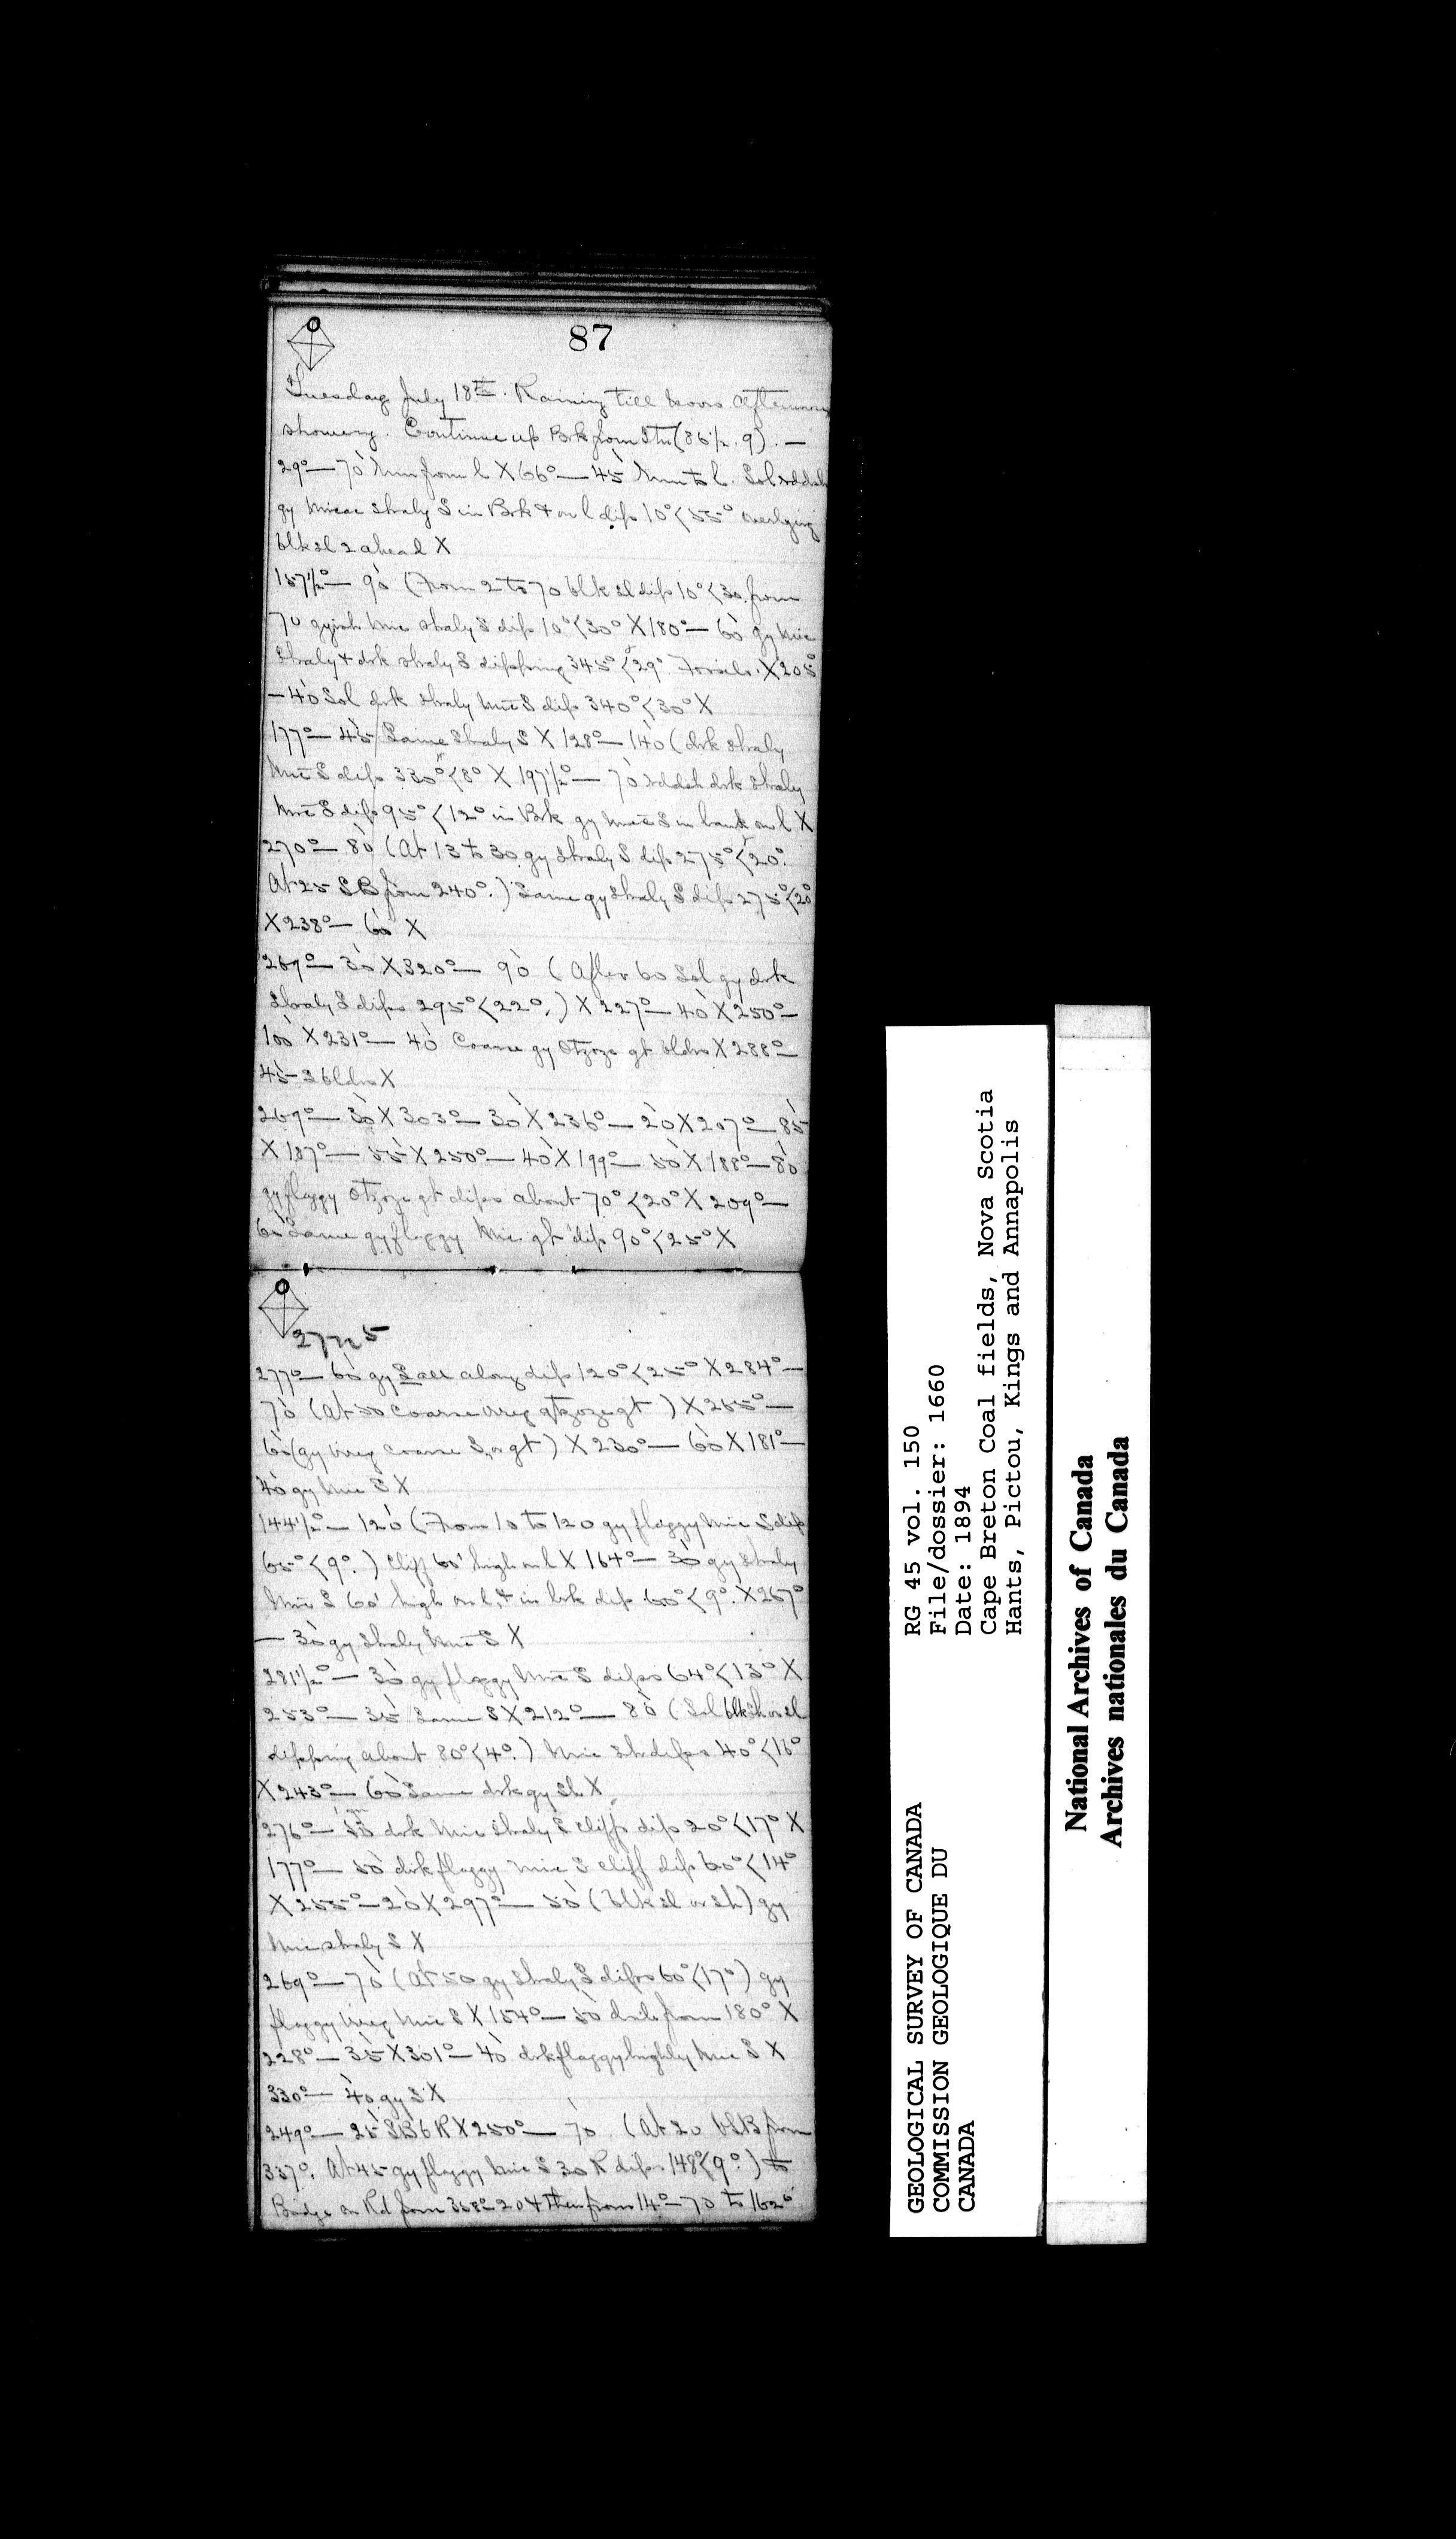 87
Tuesday July 18th. Raining till noon afternoon
showery. Continue up Brk from Stn (86 1/2. 9). —
29° — 70 from l X 66° — 45 to l. Sol rddsh
gy micac shaly S in Brk & on l dips 10° < 55° overlying
blk sl 2 ahead X
157 1/2° — 90 (From 2 to 70 blk sl dips 10° < 30. from
70 gyish mic shaly S dip 10° < 30° X 180° — 60 gy mic
shaly & drk shaly S dipping 345° < 29°. Fossils. X 205°
— 40 Sol drk shaly mic S dip 340° < 30° X
177° — 45 Same shaly S X 128° — 140 (drk shaly
mic S dips 330° < 8° X 197 1/2° — 70 rddsh drk shaly
mic S dips 95° < 12° in Brk gy mic S in bank on l X
270° — 80 (At 13 to 30 gy shaly S dip 275° < 20°.
At 25 SB from 240°.) Same gy shaly S dips 275° < 20
X 238° — 60 X
269° — 30 X 320° — 90 (After 60 Sol gy drk
shaly S dips 295° < 22°.) X 227° — 40 X 250° —
100 X 231° — 40 Coarse gy qtzoze gt bldrs X 288° —
45 S bldrs X
269° — 30 X 303° — 30 X 236° — 20 X 207° — 85
X 187° — 55 X 250° — 40 X 199° — 50 X 188° — 80
gy flaggy qtzoze gt dips about 70° < 20° X 209° —
60 Same gy flaggy mic gt dip 90° < 25° X
277° — 60 gy S all along dip 120° < 25° X 284° —
70 (At 50 coarse vreg qtzoze gt) X 255° —
60 (gy vreg coarse S. or gt) X 230° — 60 X 181° —
40 gy mic S X
144 1/2° — 120 (From 10 to 120 gy flaggy mic S dip
65° < 9°.) Cliff 60' high on l X 164° — 30 gy shaly
mic S 60' high on l, & in brk dip 60° < 9°. X 267°
— 30 gy shaly mic S X
281 1/2° — 30 gy flaggy mic S dips 64° < 13° X
253° — 35 Same S X 212° — 80 (Sol blk sh or sl
dipping about 80° < 4°.) mic sh dips 40° < 16°
X 243° — 60 Same drk gy sh X
276° — drk mic shaly S cliffs dip 20° < 17° X
177° — 50 drk flaggy mic S cliff dip 60° < 14°
X 255° — 20 X 297° — 50 (blk sl or sh) gy
mic shaly S X
269° — 70 (At 50 gy shaly S dips 60° < 17°) gy
flaggy vreg mic S X 154° — 50 from 180° X
228° — 35 X 301° — 40 drk flaggy highly mic S X
330° — 40 gy S X
249° — 25 SB 6 R X 250° — 70 (At 20 SB from
337°. At 45 gy flaggy mic S 30 R dips 148° < 9°.) to
Bridge on Rd from 358° 20 & then from 14° — 70 to 162°
GEOLOGICAL SURVEY OF CANADA
COMMISSION GEOLOGIQUE DU
CANADA
RG 45 vol. 150
File/dossier: 1660
Date: 1894
Cape Breton Coal fields, Nova Scotia
Hants, Pictou, Kings and Annapolis
National Archives of Canada
Archives nationales du Canada